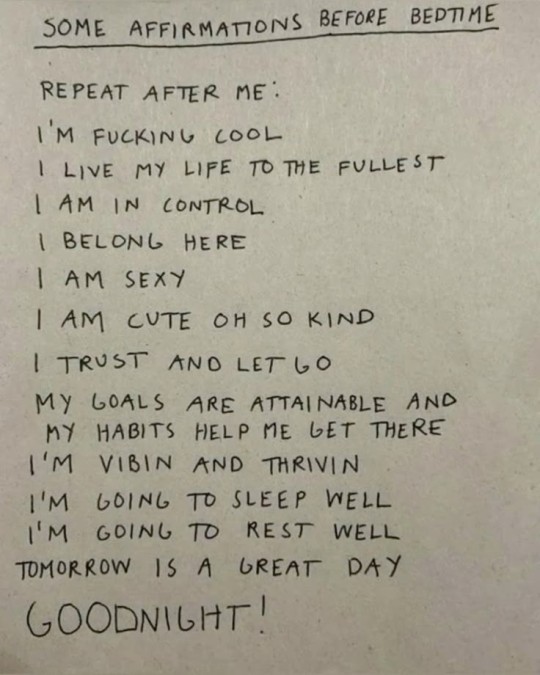 SOME AFFIRMATIONS BEFORE BEDTIME
REPEAT AFTER ME:
I'M FUCKING COOL
I LIVE MY LIFE TO THE FULLEST
I AM IN CONTROL
I BELONG HERE
I AM SEXY
I AM CUTE OH SO KIND
I TRUST AND LET GO
MY GOALS ARE ATTAINABLE AND
MY HABITS HELP ME GET THERE
I'M VIBIN AND THRIVIN
I'M GOING TO SLEEP WELL
I'M GOING TO REST WELL
TOMORROW IS A GREAT DAY
GOODNIGHT!